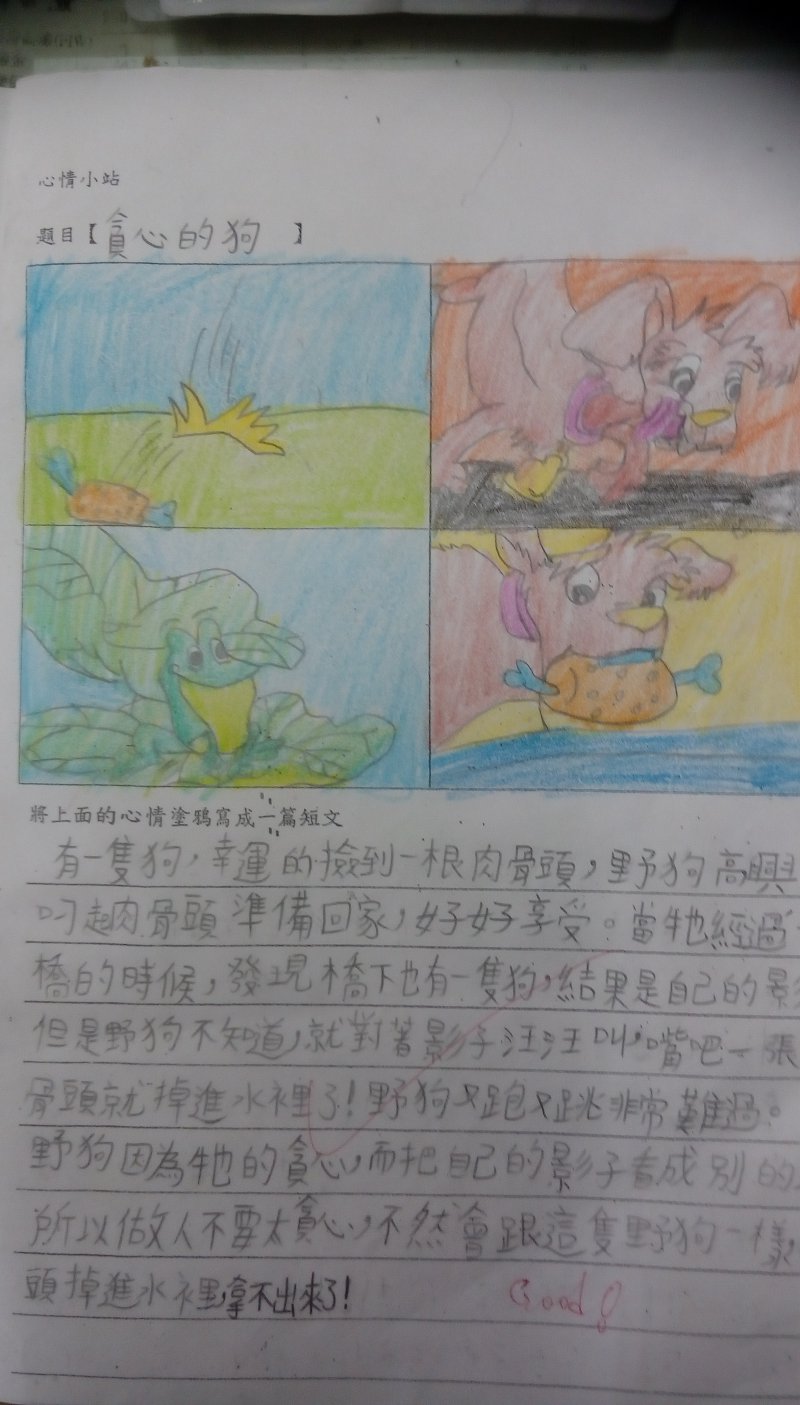 心情小站
題目【貪心的狗 】
將上面的心情塗鴉寫成一篇短文
有一隻狗，幸運的撿到一根肉骨頭，野狗高興
叼起肉骨頭準備回家，好好享受。當牠經過
橋的時候，發現橋下也有一隻狗，結果是自己的影
但是野狗不知道，就對著影子汪汪叫，嘴吧一張
骨頭就掉進水裡了！野狗又跑又跳非常難過。
野狗因為牠的貪心，而把自己的影子看成別的
所以做人不要太貪心，不然會跟這隻野狗一樣
頭掉進水裡拿不出來了！
Good!